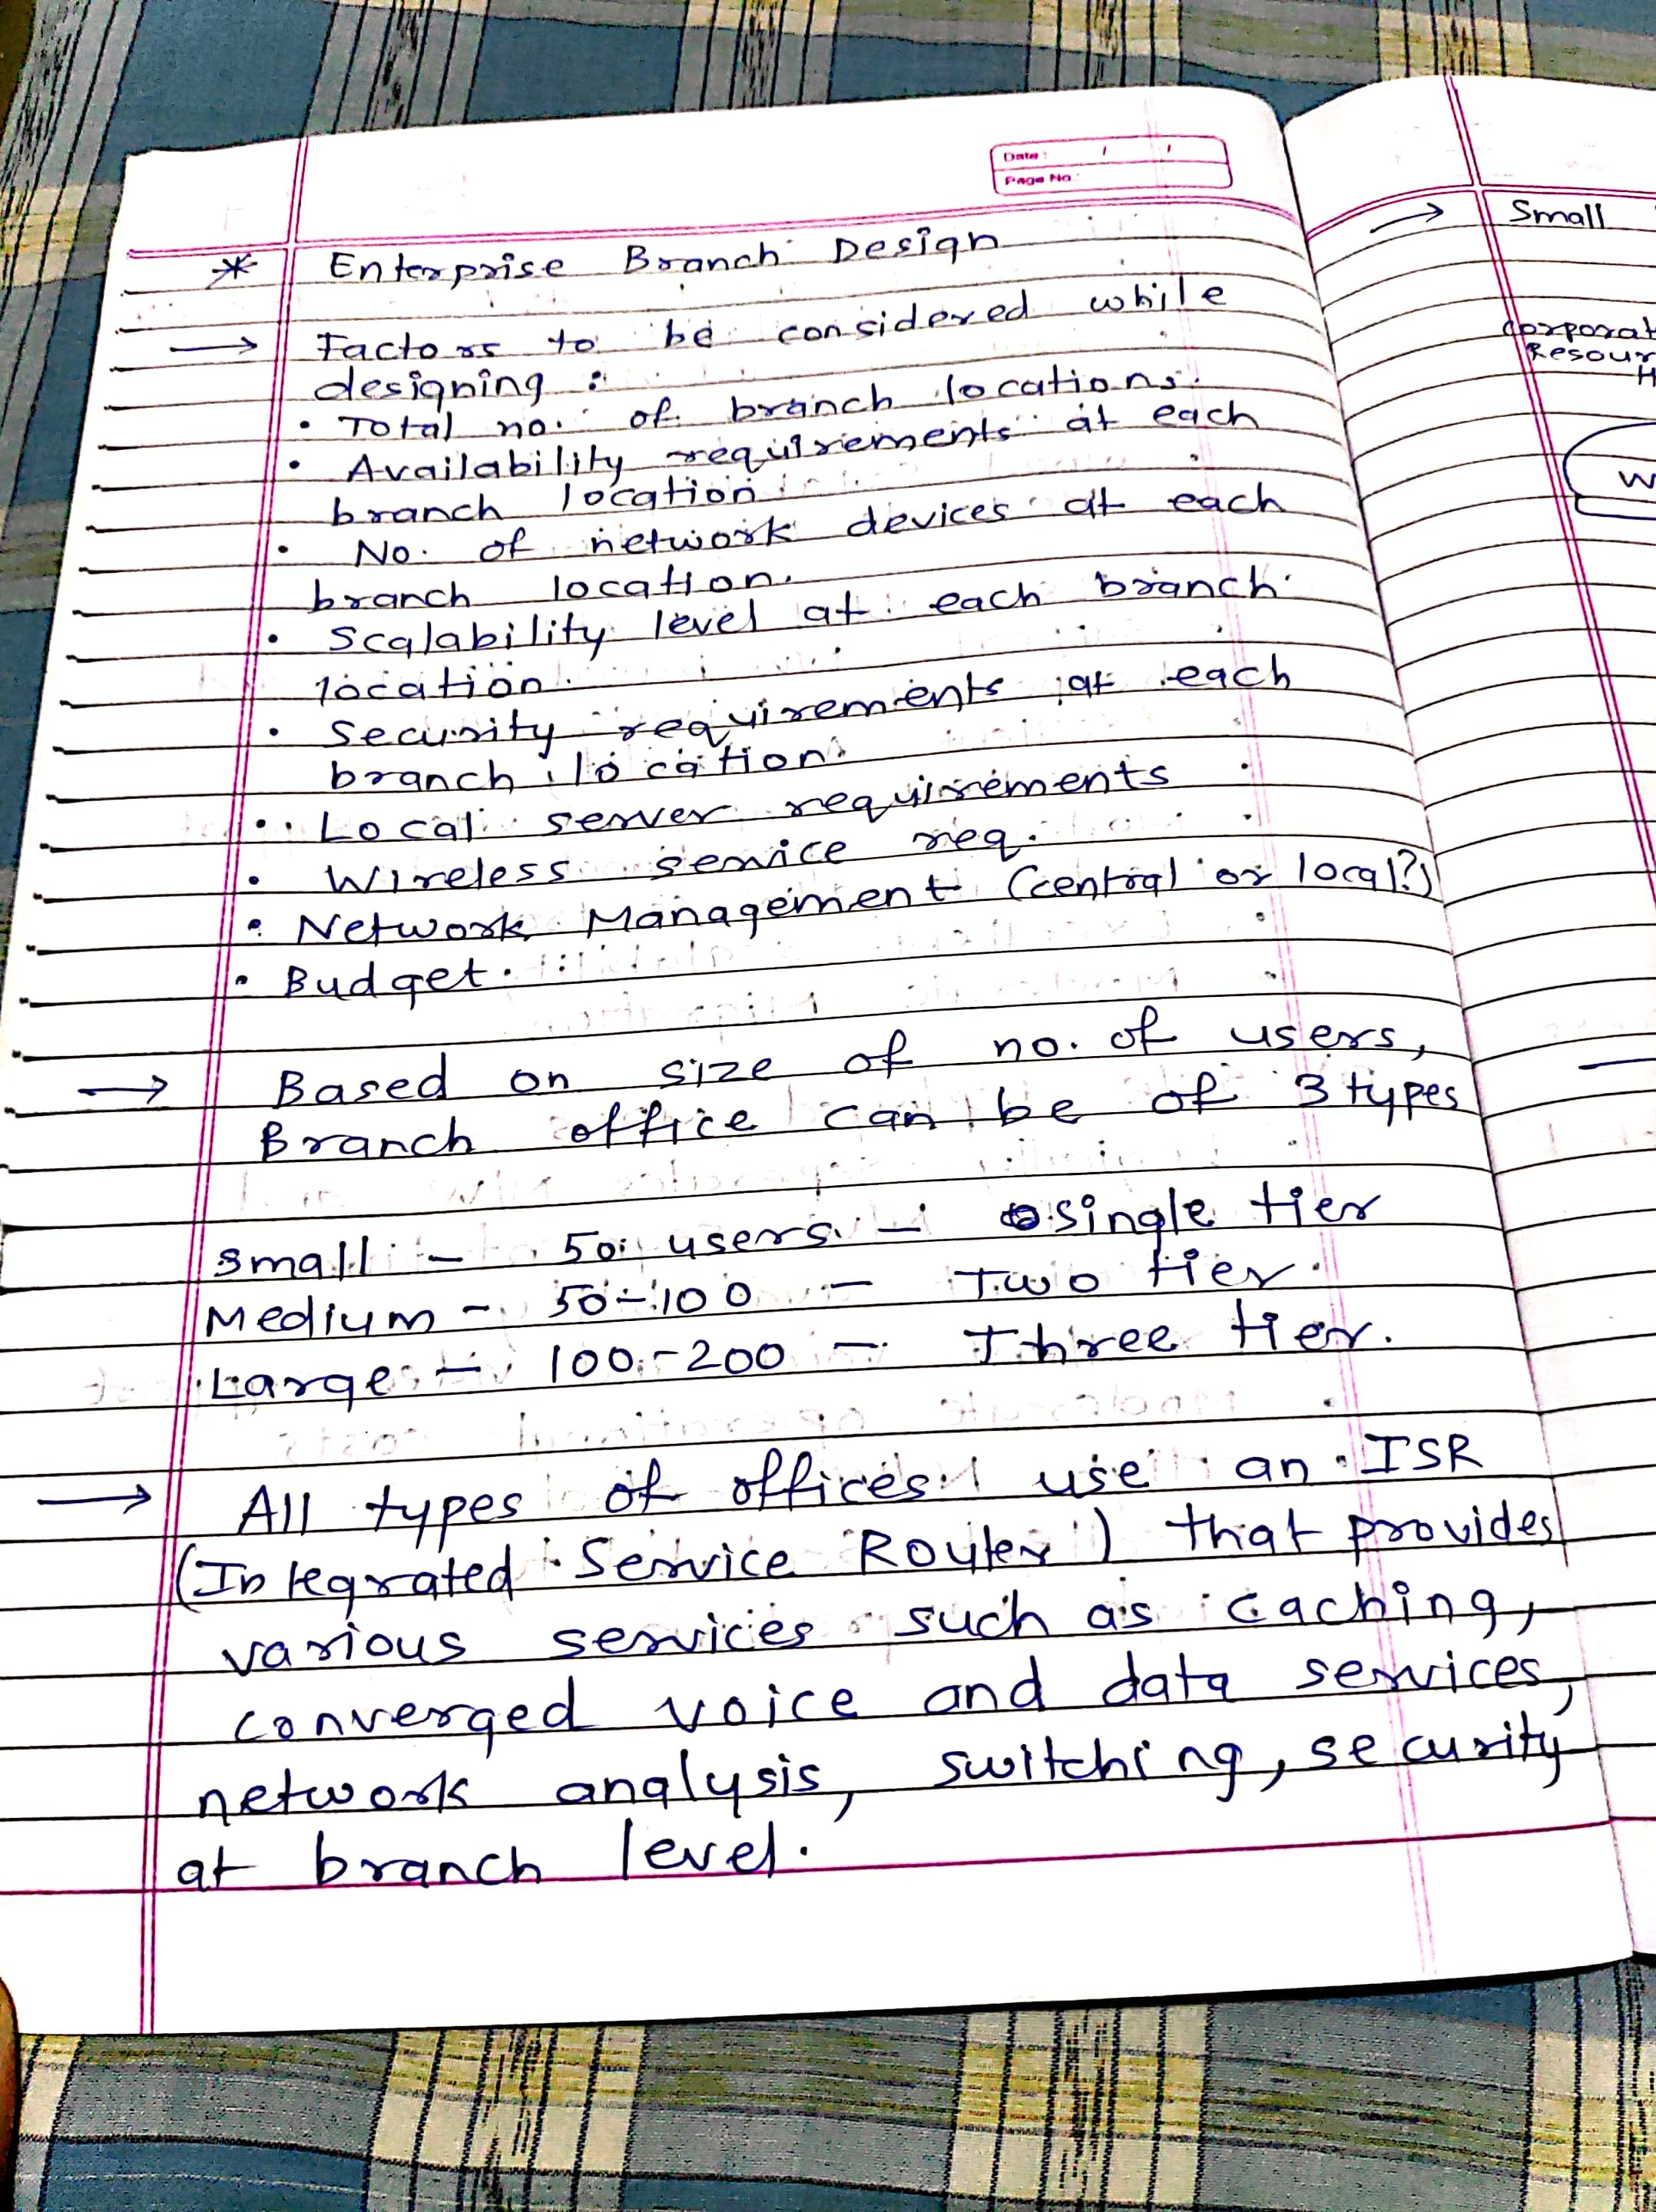 Date : / /
Page No :
* Enterprise Branch Design
→ Factors to be considered while
designing :
• Total no. of branch locations.
• Availability requirements at each
branch location
• No. of network devices at each
branch location.
• Scalability level at each branch
location.
• Security requirements at each
branch location.
• Local server requirements
• Wireless service req.
• Network Management (central or local?)
• Budget.
→ Based on size of no. of users,
Branch office can be of 3 types
Small - 50 users - single tier
Medium - 50-100 - Two tier.
Large - 100-200 - Three tier.
→ All types of offices use an ISR
(Integrated Service Router) that provides
various services such as caching,
converged voice and data services,
network analysis, switching, security
at branch level.
→ Small